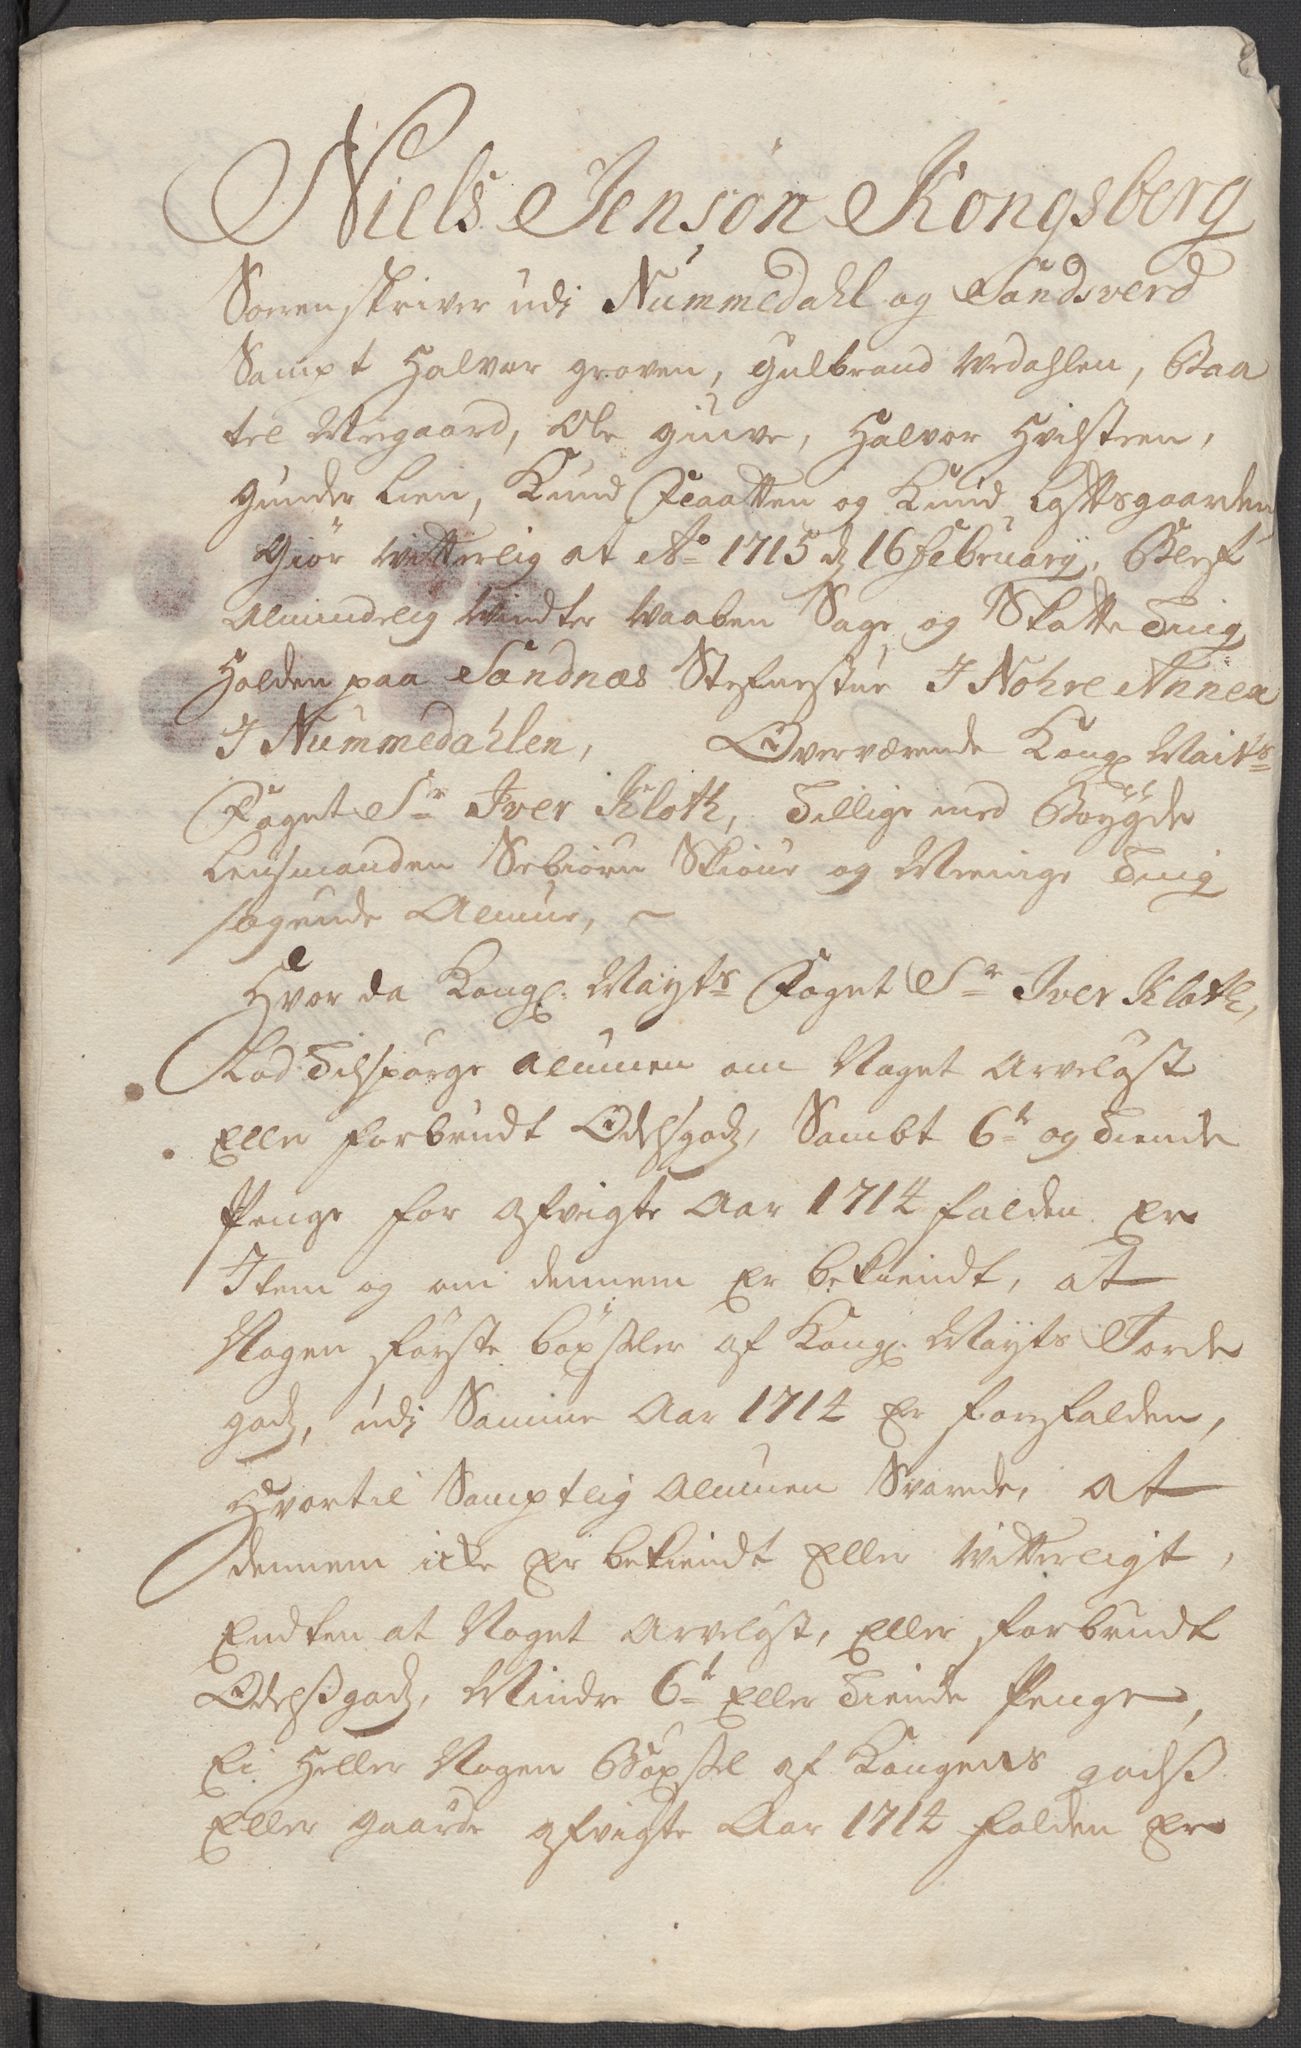 Niels Jensøn Kongsberg
Sorrenskriver udj Nummedahl og Sandsverd
Sampt Halvor graven, Gulbrand Wrdahlen, Baa
tel Megaard, Ole giuve, Halvor Hvilsteen,
gunder Lien, Knud Fraatten og Knud
Giör Witterlig at Ao 1715 d 16 February, Blef
Almindelig Windter Waaben Sage og Skatte Ting
Holden paa Sandnæs Stefnestue J Nohre Annex
J Nummedahlen, Overværende Kongl Maits
Foget Sr Jver Kloth, Tillige med Bøygde
Lensmanden Sebiörn Skiönne og Meenige Ting
søgende Almue,
Hvor da Kongl: Mayts Foget Sr Jver Kloth,
Lod Tilspørge Almuen om Noget Arveløst
Eller forbrudt Odelsgodz, Sambt 6te og Tiende
Penge for afvigte Aar 1714 falden Er
Jtem og om dennem Er bekiendt, at
Nogen förste böxseler af Kongl: Mayts Jorde
godz, udj Samme Aar 1714 Er forfalden,
Hvortil Samptlig Almuen Svarede, at
dennem icke Er bekiendt Eller Witterligt,
Endten at Noget Arveløst, Eller forbrudt
Odelsgodz, Mindre 6te Eller Tiende Penge,
Ei Heller Nogen Böxsel af Kongens godtz
Eller gaarde afvigte Aar 1714 falden Er